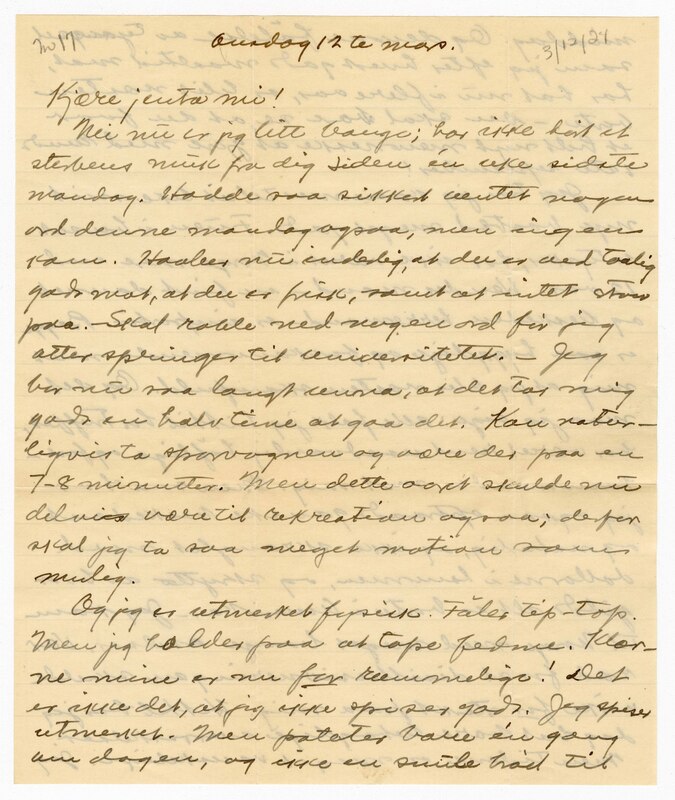 no 17
Onsdag 12 te mars.
3/12/21
Kjære jenta mi!
Nei nu er jeg litt bange; har ikke hørt et
sterbens muk fra dig siden én uke sidste
mandag. Hadde saa sikkert ventet nogen
ord denne mandag ogsaa, men ingen
kom. Haaber nu inderlig, at du er ved
godt mot, at du er frisk, samt at intet
paa. – Skal rable ned nogen ord før jeg
atter springer til universitetet. – Jeg
bor nu saa langt unna, at det tar mig
godt en halv time at gaa det. Kan natur-
ligvis ta sporvognen og være der paa en
7-8 minuter. Men dette aaret skulde nu
delvis være til rekreation ogsaa; derfor
skal jeg ta saa meget motion som
mulig.
Og jeg er utmerket fysisk. Føler tip-top.
Men jeg holder paa at tape fedme. Klær-
ne mine er nu for rummelige! Det
er ikke det, at jeg ikke spiser godt. Jeg spiser
utmerket. Men poteter bare én gang
om dagen, og ikke en smule brød til